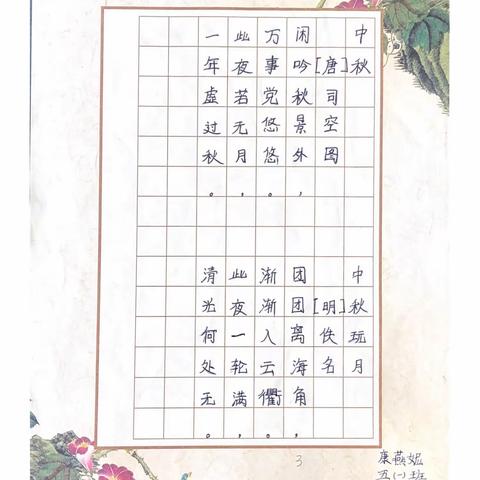 中秋
[唐]司空图
闲吟秋景外，
万事党悠悠。
此夜若无月，
一年虚过秋。
中秋玩月
[明]佚名
团团离海角，
渐渐入云衢。
此夜一轮满，
清光何处无。
3
康燕妮
五(一)班